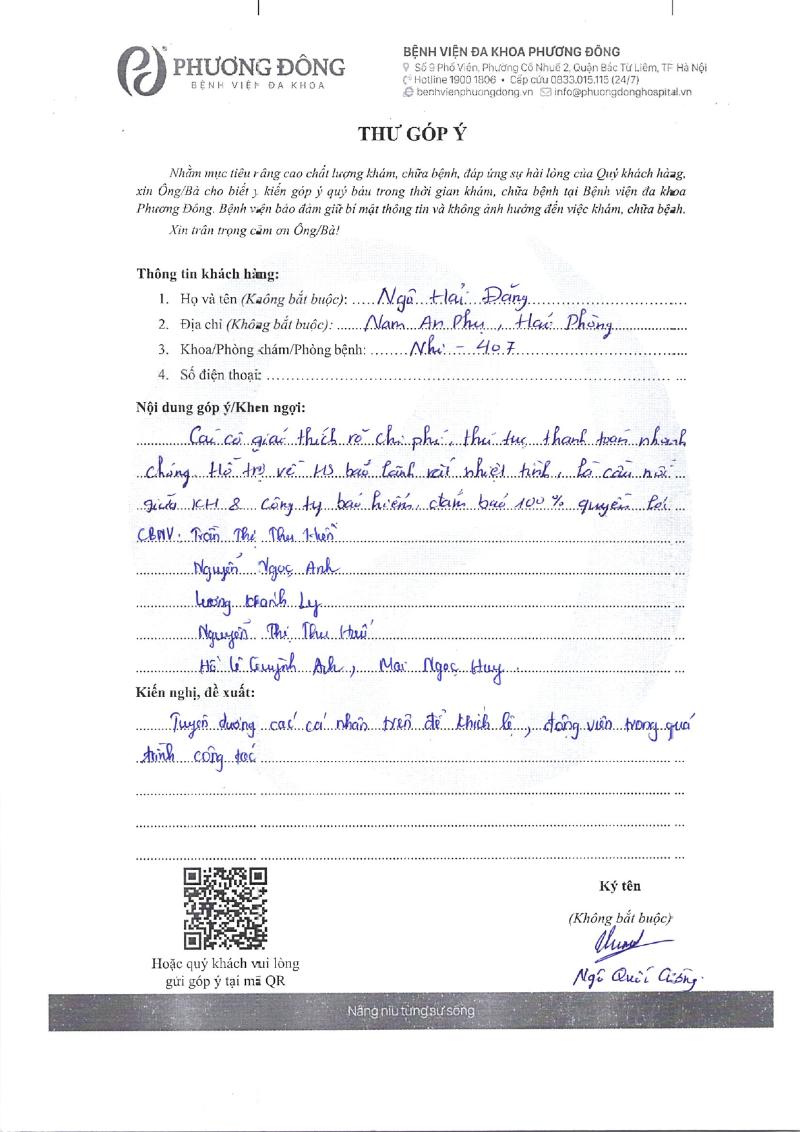 PHƯƠNG ĐÔNG
BỆNH VIỆN ĐA KHOA
BỆNH VIỆN ĐA KHOA PHƯƠNG ĐÔNG
Số 9 Phố Viên, Phường Cổ Nhuế 2, Quận Bắc Từ Liêm, TP Hà Nội
Hotline 1900 1806 • Cấp cứu 0833.015.115 (24/7)
benhvienphuongdong.vn info@phuongdonghospital.vn
THƯ GÓP Ý
Nhằm mục tiêu nâng cao chất lượng khám, chữa bệnh, đáp ứng sự hài lòng của Quý khách hàng,
xin Ông/Bà cho biết ý kiến góp ý quý báu trong thời gian khám, chữa bệnh tại Bệnh viện đa khoa
Phương Đông. Bệnh viện bảo đảm giữ bí mật thông tin và không ảnh hưởng đến việc khám, chữa bệnh.
Xin trân trọng cảm ơn Ông/Bà!
Thông tin khách hàng:
1. Họ và tên (Không bắt buộc): Ngô Hải Đăng
2. Địa chỉ (Không bắt buộc): Nam An Phụ, Hải Phòng
3. Khoa/Phòng khám/Phòng bệnh: Nhi - 407
4. Số điện thoại:
Nội dung góp ý/Khen ngợi:
Các cô giải thích rõ chi phí, thủ tục thanh toán nhanh
chóng. Hỗ trợ về HS bảo lãnh rất nhiệt tình, là cầu nối
giữa KH & công ty bảo hiểm, đảm bảo 100% quyền lợi
CBNV: Trần Thị Thu Hiền
Nguyễn Ngọc Anh
Lương Khánh Ly
Nguyễn Thị Thu Huế
Hồ Lê Quỳnh Anh, Mai Ngọc Huy.
Kiến nghị, đề xuất:
Tuyên dương các cá nhân trên để khích lệ, động viên trong quá
trình công tác
Ký tên
(Không bắt buộc)
Ngô Quốc Cường.
Hoặc quý khách vui lòng
gửi góp ý tại mã QR
Nâng niu từng sự sống